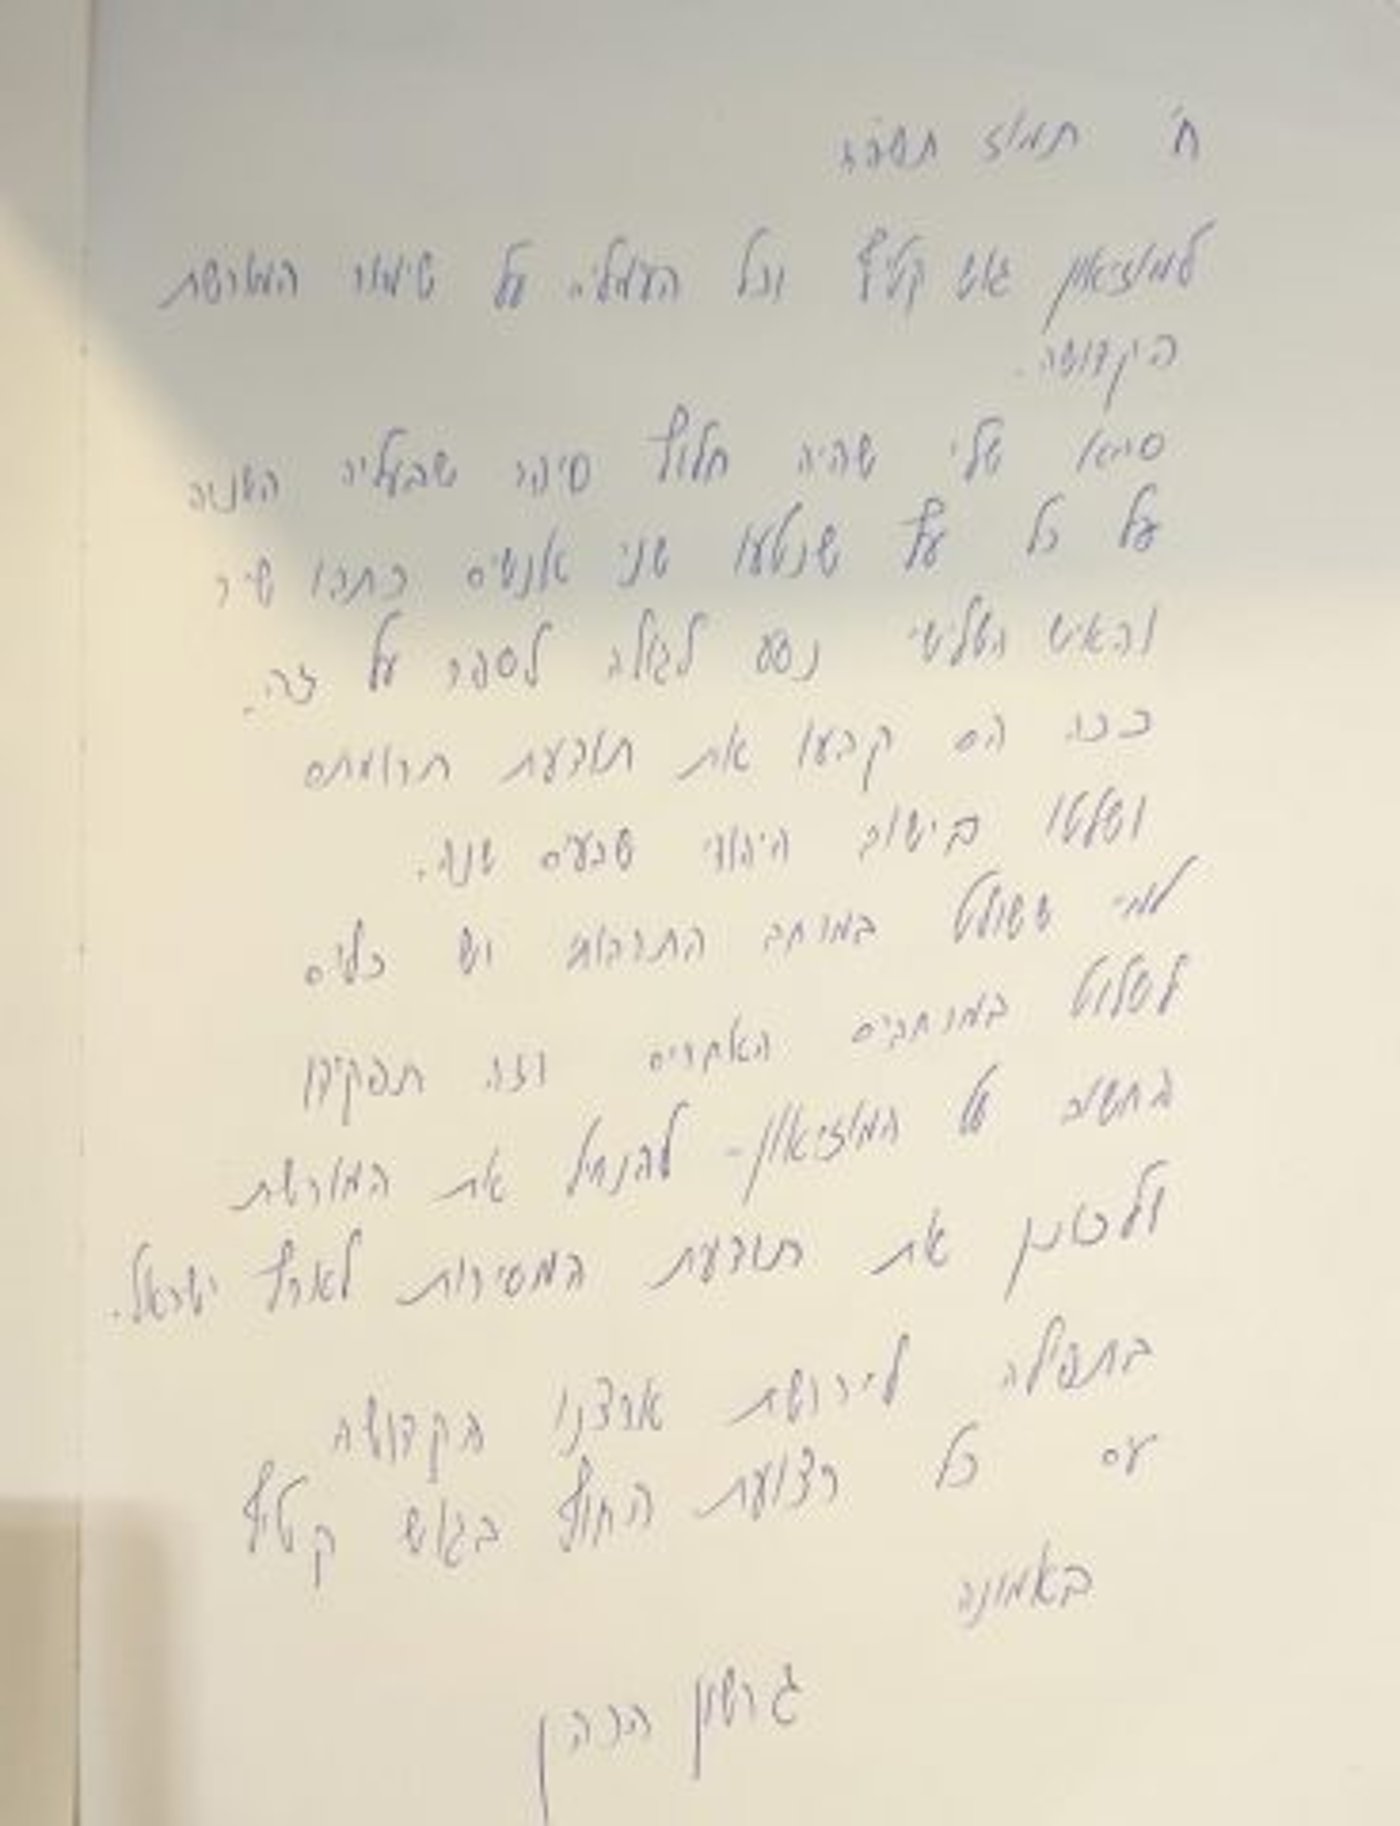 ח' תמוז תשפ"ג
למוזיאון גוש קטיף וכל העמליה על שימור המורשת
הקדושה.
סבא שלי שהיה חלוץ סיפר שבעליה השניה
על כל עץ שנטעו שני אנשים כתבו שיר
והאיש השלישי נסע לגולה לספר על זה.
ככה הם קבעו את תודעת תרומתם
ושלטו בישוב היהודי שבעים שנה.
למי ששולט במרחב התרבות יש כלים
לשלוט במרחבים האחרים וזה תפקידו
החשוב של המוזיאון - להנחיל את המורשת
ולכונן את תודעת המסירות לארץ ישראל.
בתפילה לירושת ארצנו הקדושה
עם כל רצועת החוף בגוש קטיף
באמונה
גרשון הכהן